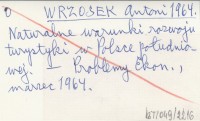 o WRZOSEK Antoni 1964.
Naturalne warunki rozwoju
turystyki w Polsce południo-
wej. — Problemy Ekon.,
marzec 1964.